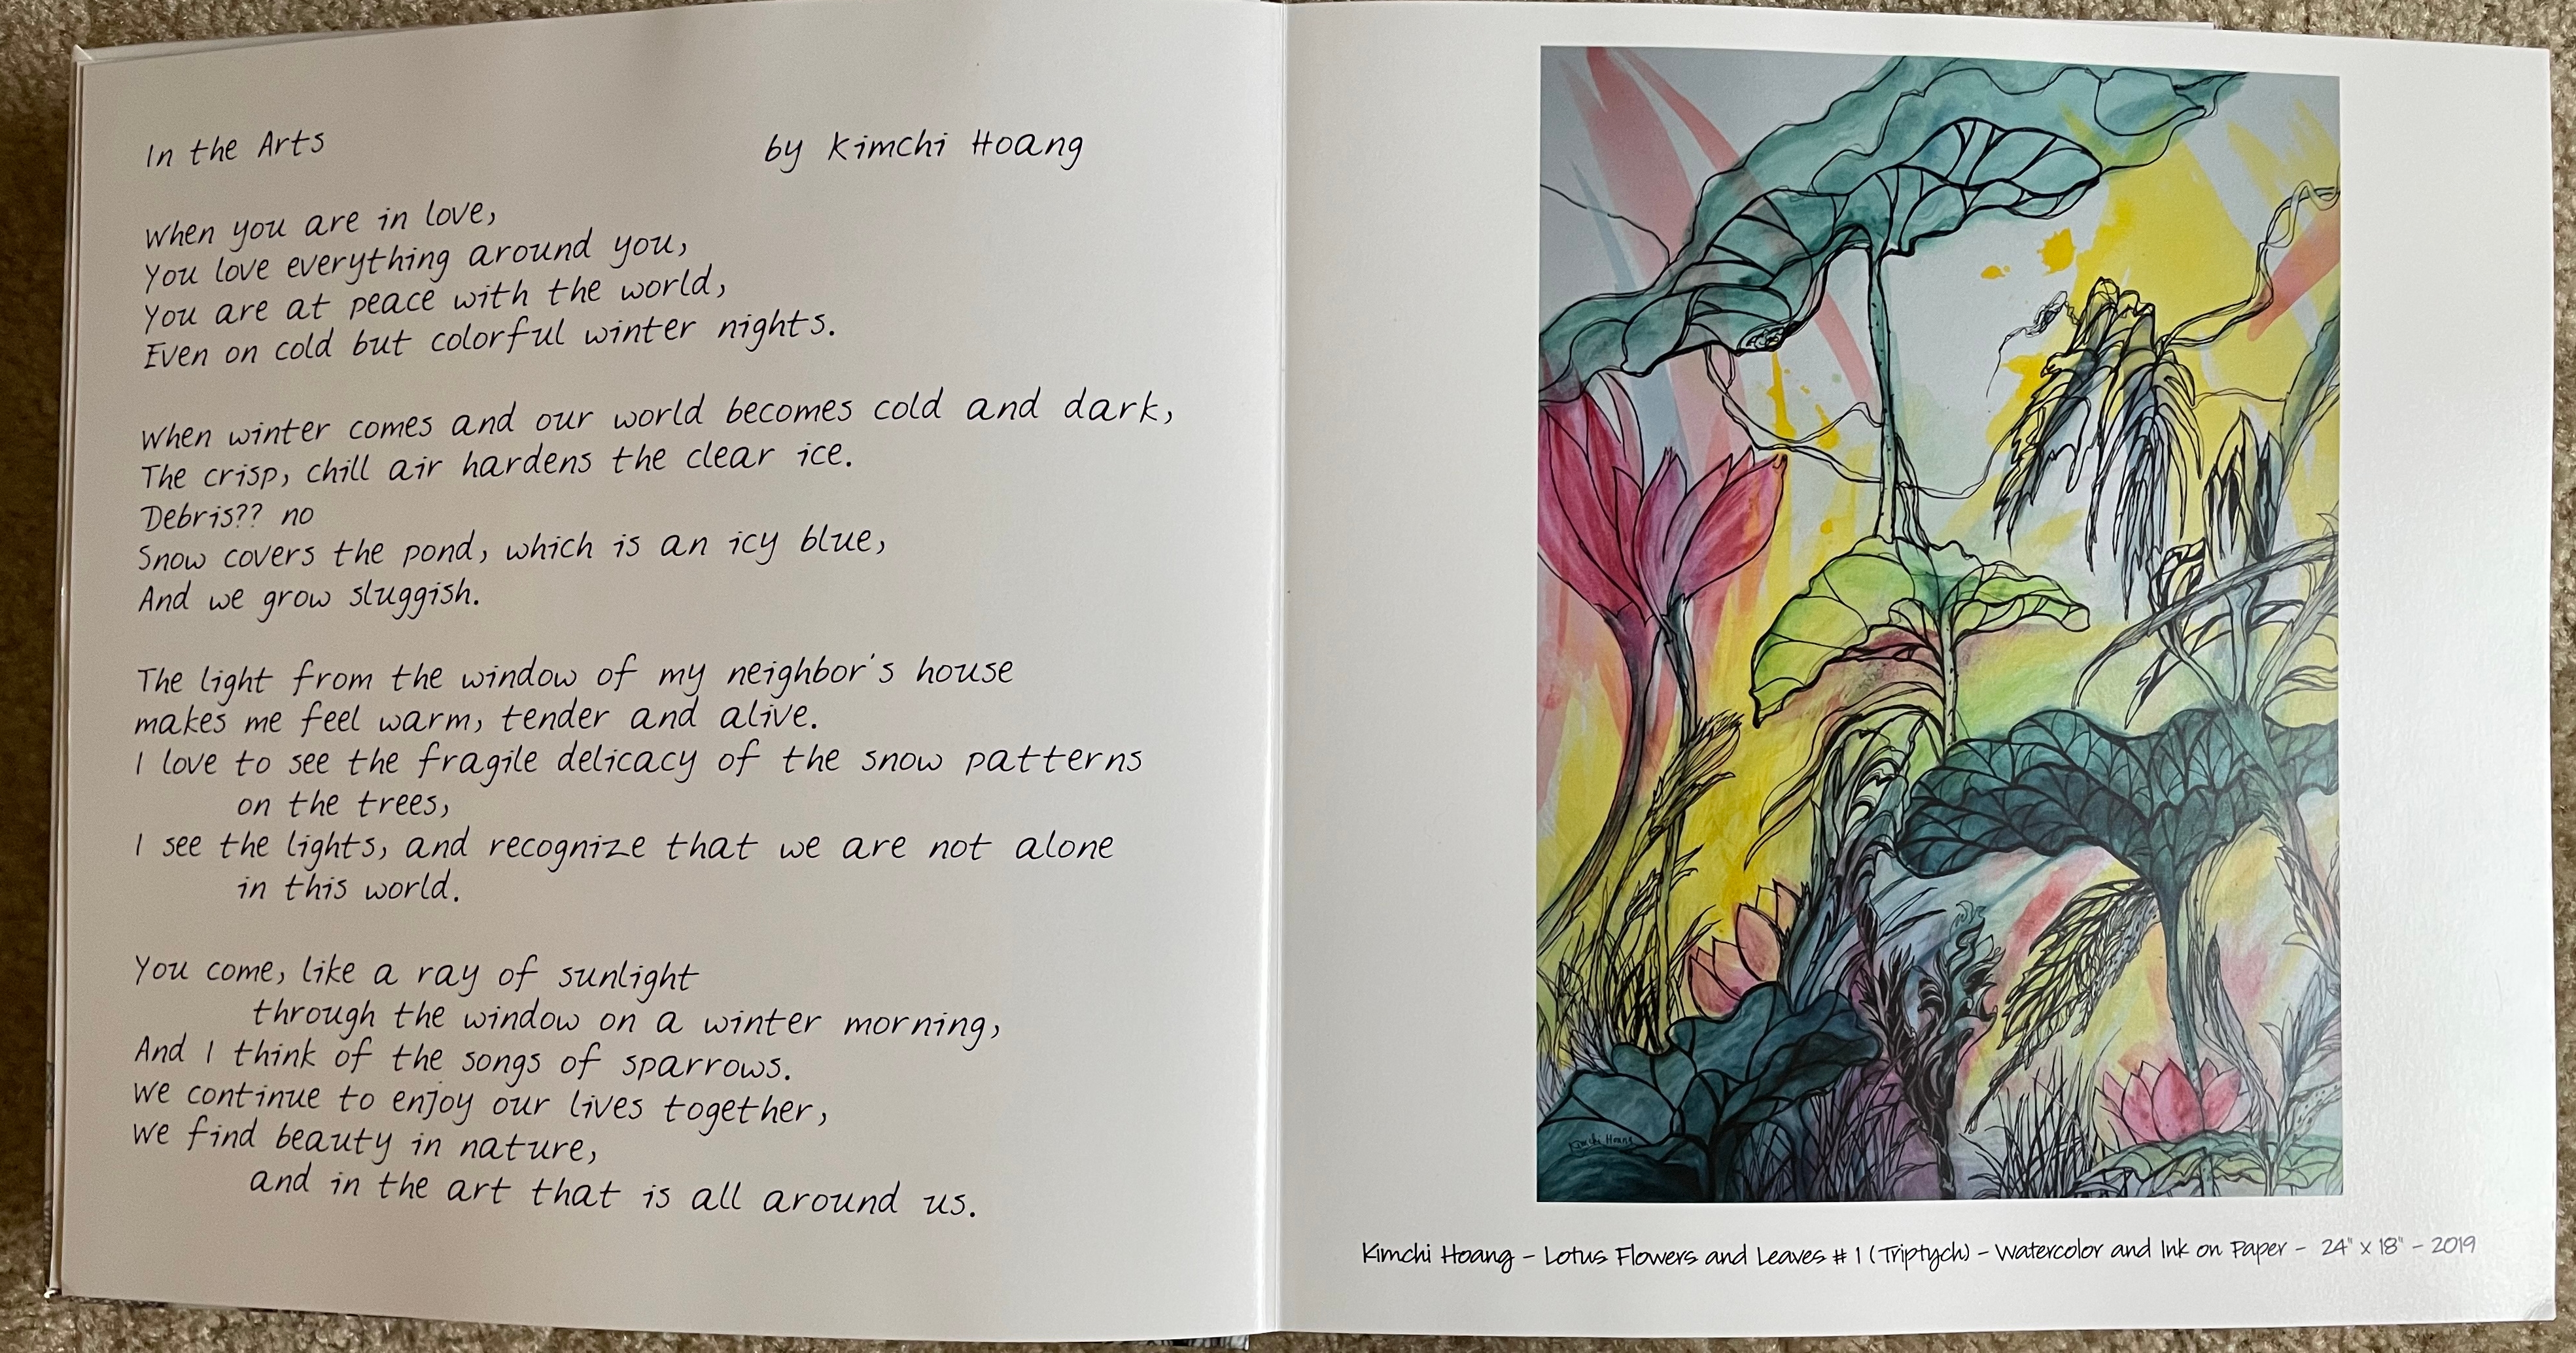 In the Arts
by Kimchi Hoang
When you are in love,
You love everything around you,
You are at peace with the world,
Even on cold but colorful winter nights.
When winter comes and our world becomes cold and dark,
The crisp, chill air hardens the clear ice.
Debris?? no
Snow covers the pond, which is an icy blue,
And we grow sluggish.
The light from the window of my neighbor's house
makes me feel warm, tender and alive.
I love to see the fragile delicacy of the snow patterns
on the trees,
I see the lights, and recognize that we are not alone
in this world.
You come, like a ray of sunlight
through the window on a winter morning,
And I think of the songs of sparrows.
We continue to enjoy our lives together,
We find beauty in nature,
and in the art that is all around us.
Kimchi Hoang
Kimchi Hoang - Lotus Flowers and Leaves # 1 (Triptych) - Watercolor and Ink on Paper - 24" x 18" - 2019